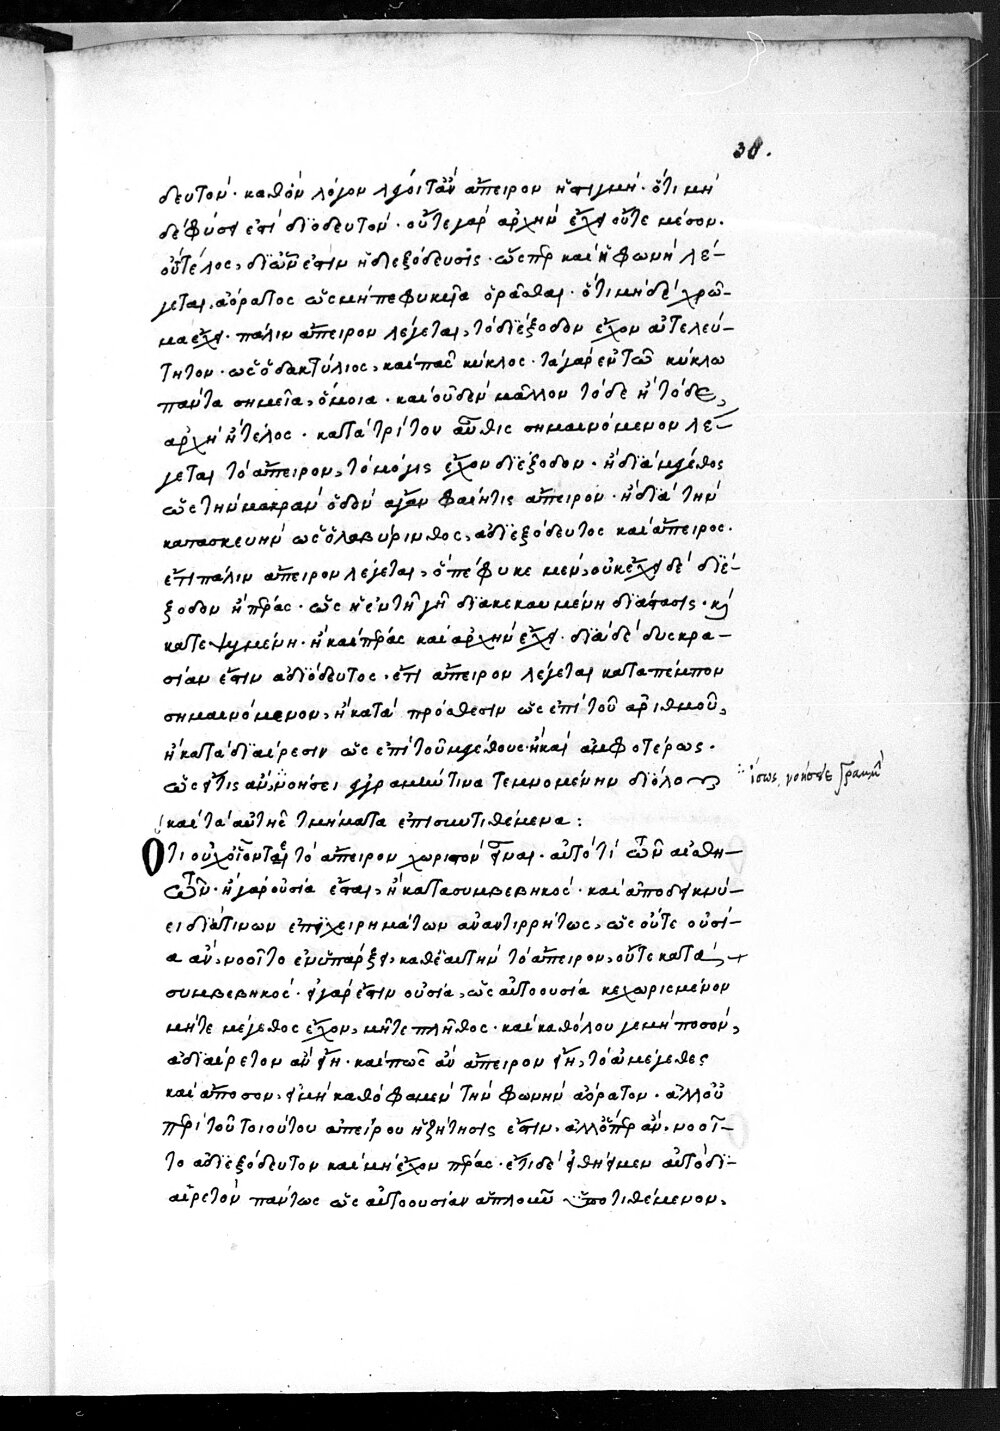 38.
δευτόν· καθ' ὃν λόγον λέγοιτ' ἂν ἄπειρον ἡ στιγμή· ὅτι μὴ
δὲ φύσει ἐστὶ διοδευτόν· οὔτε γὰρ ἀρχὴν ἔχει οὔτε μέσον.
οὔτε τέλος, δι' ὧν ἐστιν ἡ διεξόδευσις· ὥσπερ καὶ ἡ φωνὴ λέ-
γεται ἀόρατος ὡς μὴ πεφυκεῖα ὁρᾶσθαι· ὅτι μὴ δὲ χρῶ-
μα ἔχει· πάλιν ἄπειρον λέγεται, τὸ διέξοδον ἔχον ἀτελεύ-
τητον· ὡς ὁ δακτύλιος, καὶ πᾶς κύκλος· τὰ γὰρ ἐν τῶ κύκλω
πάντα σημεῖα, ὅμοια· καὶ οὐδὲν μᾶλλον τόδε ἢ τόδε,
ἀρχὴ ἢ τέλος· κατὰ τρίτον αὖθις σημαινόμενον λέ-
γεται τὸ ἄπειρον, τὸ μόγις ἔχον διέξοδον· ἢ διὰ μέγεθος
ὡς τὴν μακρὰν ὁδὸν ἂν φαίη τις ἄπειρον· ἢ διὰ τὴν
κατασκευὴν ὡς ὁ λαβύρινθος, ἀδιεξόδευτος καὶ ἄπειρος.
ἔτι πάλιν ἄπειρον λέγεται, ὃ πέφυκε μὲν, οὐκ ἔχει δὲ διέ-
ξοδον ἢ πέρας· ὡς ἡ ἐν τῇ γῇ διακεκαυμένη διάστασις· καὶ
κατεψυγμένη· ἢ καὶ πέρας καὶ ἀρχὴν ἔχει· διὰ δὲ δυσκρα-
σίαν ἐστὶν ἀδιόδευτος· ἔτι ἄπειρον λέγεται κατὰ πέμπτον
σημαινόμενον, ἢ κατὰ πρόσθεσιν ὡς ἐπὶ τοῦ ἀριθμοῦ,
ἢ κατὰ διαίρεσιν ὡς ἐπὶ τοῦ μεγέθους· ἢ καὶ ἀμφοτέρως.
ὡς εἴ τις ἂν νοήσει γραμμήν τινα τεμνομένην δι' ὅλου
ἴσως, νοήσειε γραμμὴ
καὶ τὰ αὐτῆς τμήματα ἐπισυντιθέμενα:
Ὅτι οὐχ οἷόν τε τὸ ἄπειρον χωριστὸν εἶναι· αὐτό τι ὂν τῶν αἰσθη-
τῶν· ἢ γὰρ οὐσία ἔσται, ἢ κατὰ συμβεβηκός· καὶ ἀποδεικνύ-
ει διά τινων ἐπιχειρημάτων ἀναντιρρήτως, ὡς οὔτε οὐσί-
α ἂν, νοοῖτο ἐν ὑπάρξει, καθ' ἑαυτὴν τὸ ἄπειρον, οὔτε κατὰ
συμβεβηκός· εἰ γάρ ἐστιν οὐσία, ὡς αὐτοουσία κεχωρισμένον
μήτε μέγεθος ἔχον, μήτε πλῆθος· καὶ καθόλου γε μὴ ποσόν,
ἀδιαίρετον ἂν εἴη· καὶ πῶς ἂν ἄπειρον εἴη, τὸ ἀμέγεθες
καὶ ἄποσον, εἰ μὴ καθὸ φαμὲν τὴν φωνὴν ἀόρατον· ἀλλ' οὐ
περὶ τοῦ τοιούτου ἀπείρου ἡ ζήτησίς ἐστιν, ἀλλ' ὅπερ ἂν, νοοῖ-
το ἀδιεξόδευτον καὶ μὴ ἔχον πέρας· ἔτι δὲ εἰ θείημεν αὐτὸ δι-
αιρετὸν πάντως ὡς αὐτοουσίαν ἁπλοικῶς ὑποτιθέμενον,